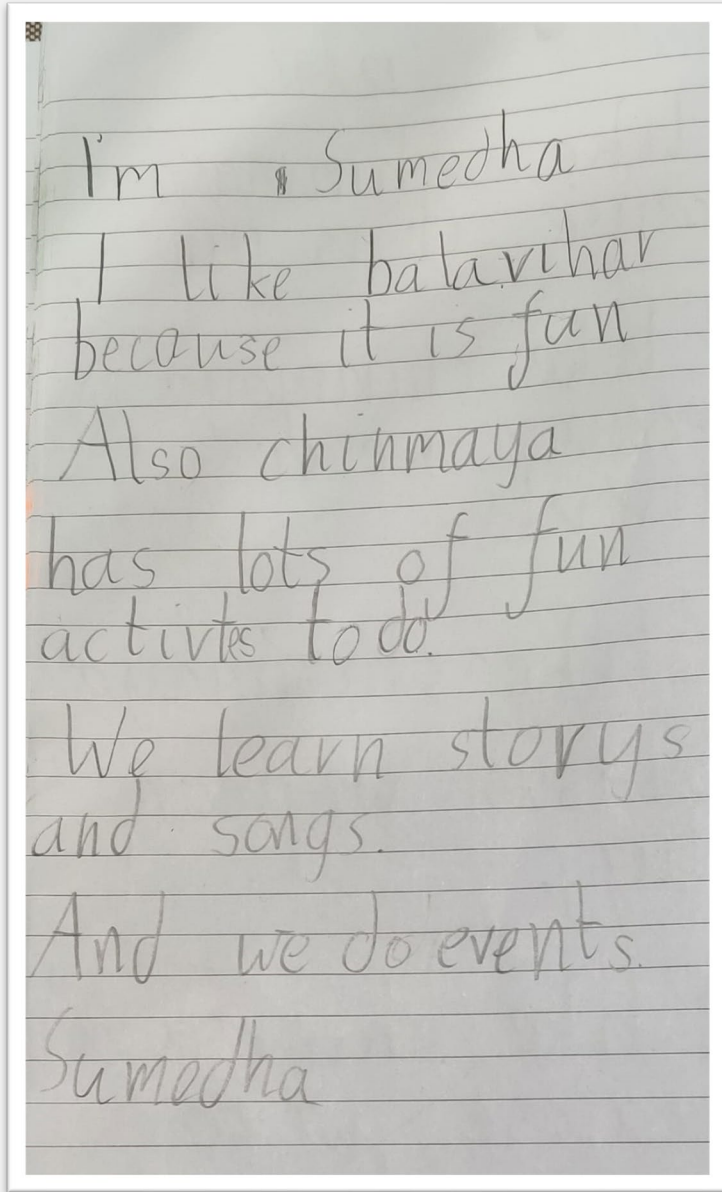 I'm Sumedha
I like balavihar
because it is fun
Also chinmaya
has lots of fun
activtes to do.
We learn storys
and songs.
And we do events.
Sumedha